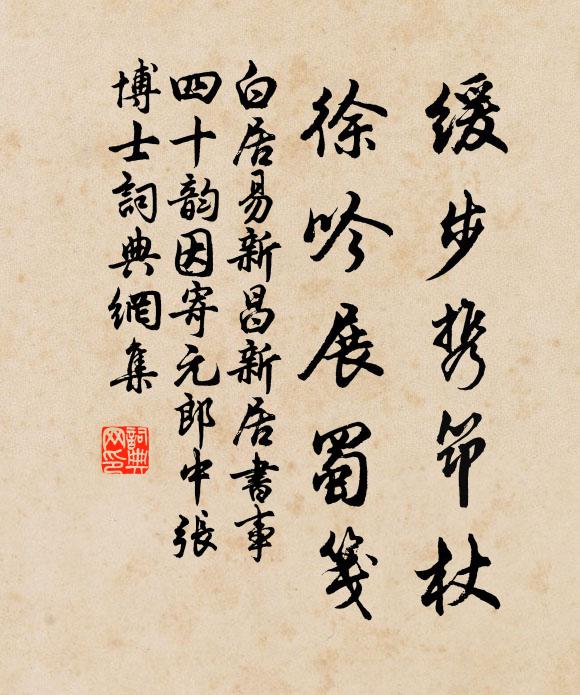 缓步携筇杖
徐吟展蜀笺
白居易新昌新居書事
四十韵因寄元郎中張
博士詞典網集
詞典
网印